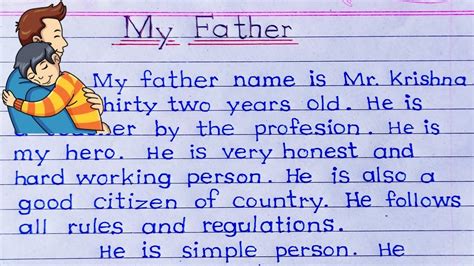 My Father
My father name is Mr. Krishna
thirty two years old. He is
by the profesion. He is
my hero. He is very honest and
hard working person. He is also a
good citizen of country. He follows
all rules and regulations.
He is simple person. He